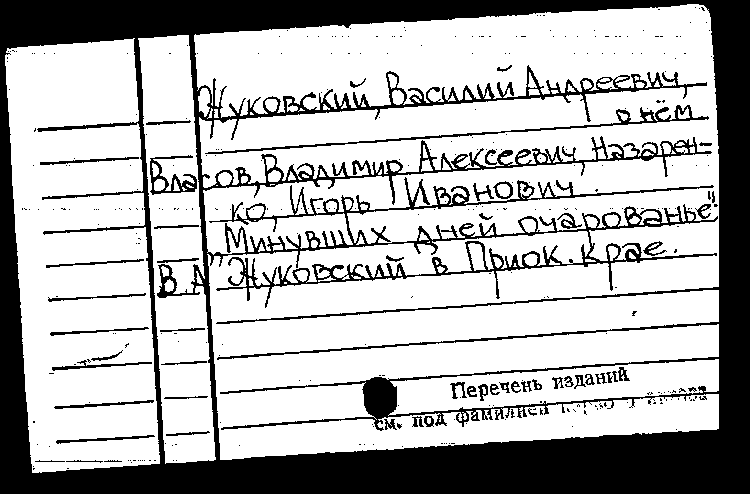 Жуковский, Василий Андреевич,
о нём
Власов, Владимир Алексеевич, Назарен=
ко, Игорь Иванович.
„Минувших дней очарованье“:
В.А. Жуковский в Приок. крае.
Перечень изданий
см. под фамилией